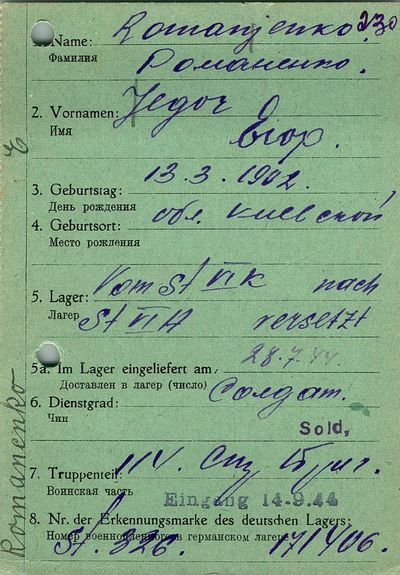 230
1. Name: Romanjenko.
Фамилия Романенко.
2. Vornamen: Jegor
Имя Егор.
13.3.1902.
3. Geburtstag:
День рождения обл. Киевской
4. Geburtsort:
Место рождения
Vom St VI K nach
5. Lager:
Лагерь St VI A versetzt
28.7.44.
5a. Im Lager eingeliefert am:
Доставлен в лагерь (число) Солдат.
6. Dienstgrad:
Чин
Sold,
114.
7. Truppenteil:
Воинская часть
Eingang 14-9.44
8. Nr. der Erkennungsmarke des deutschen Lagers:
Номер военнопленного в германском лагере:
St. 326. 171406.
E
Romanenko